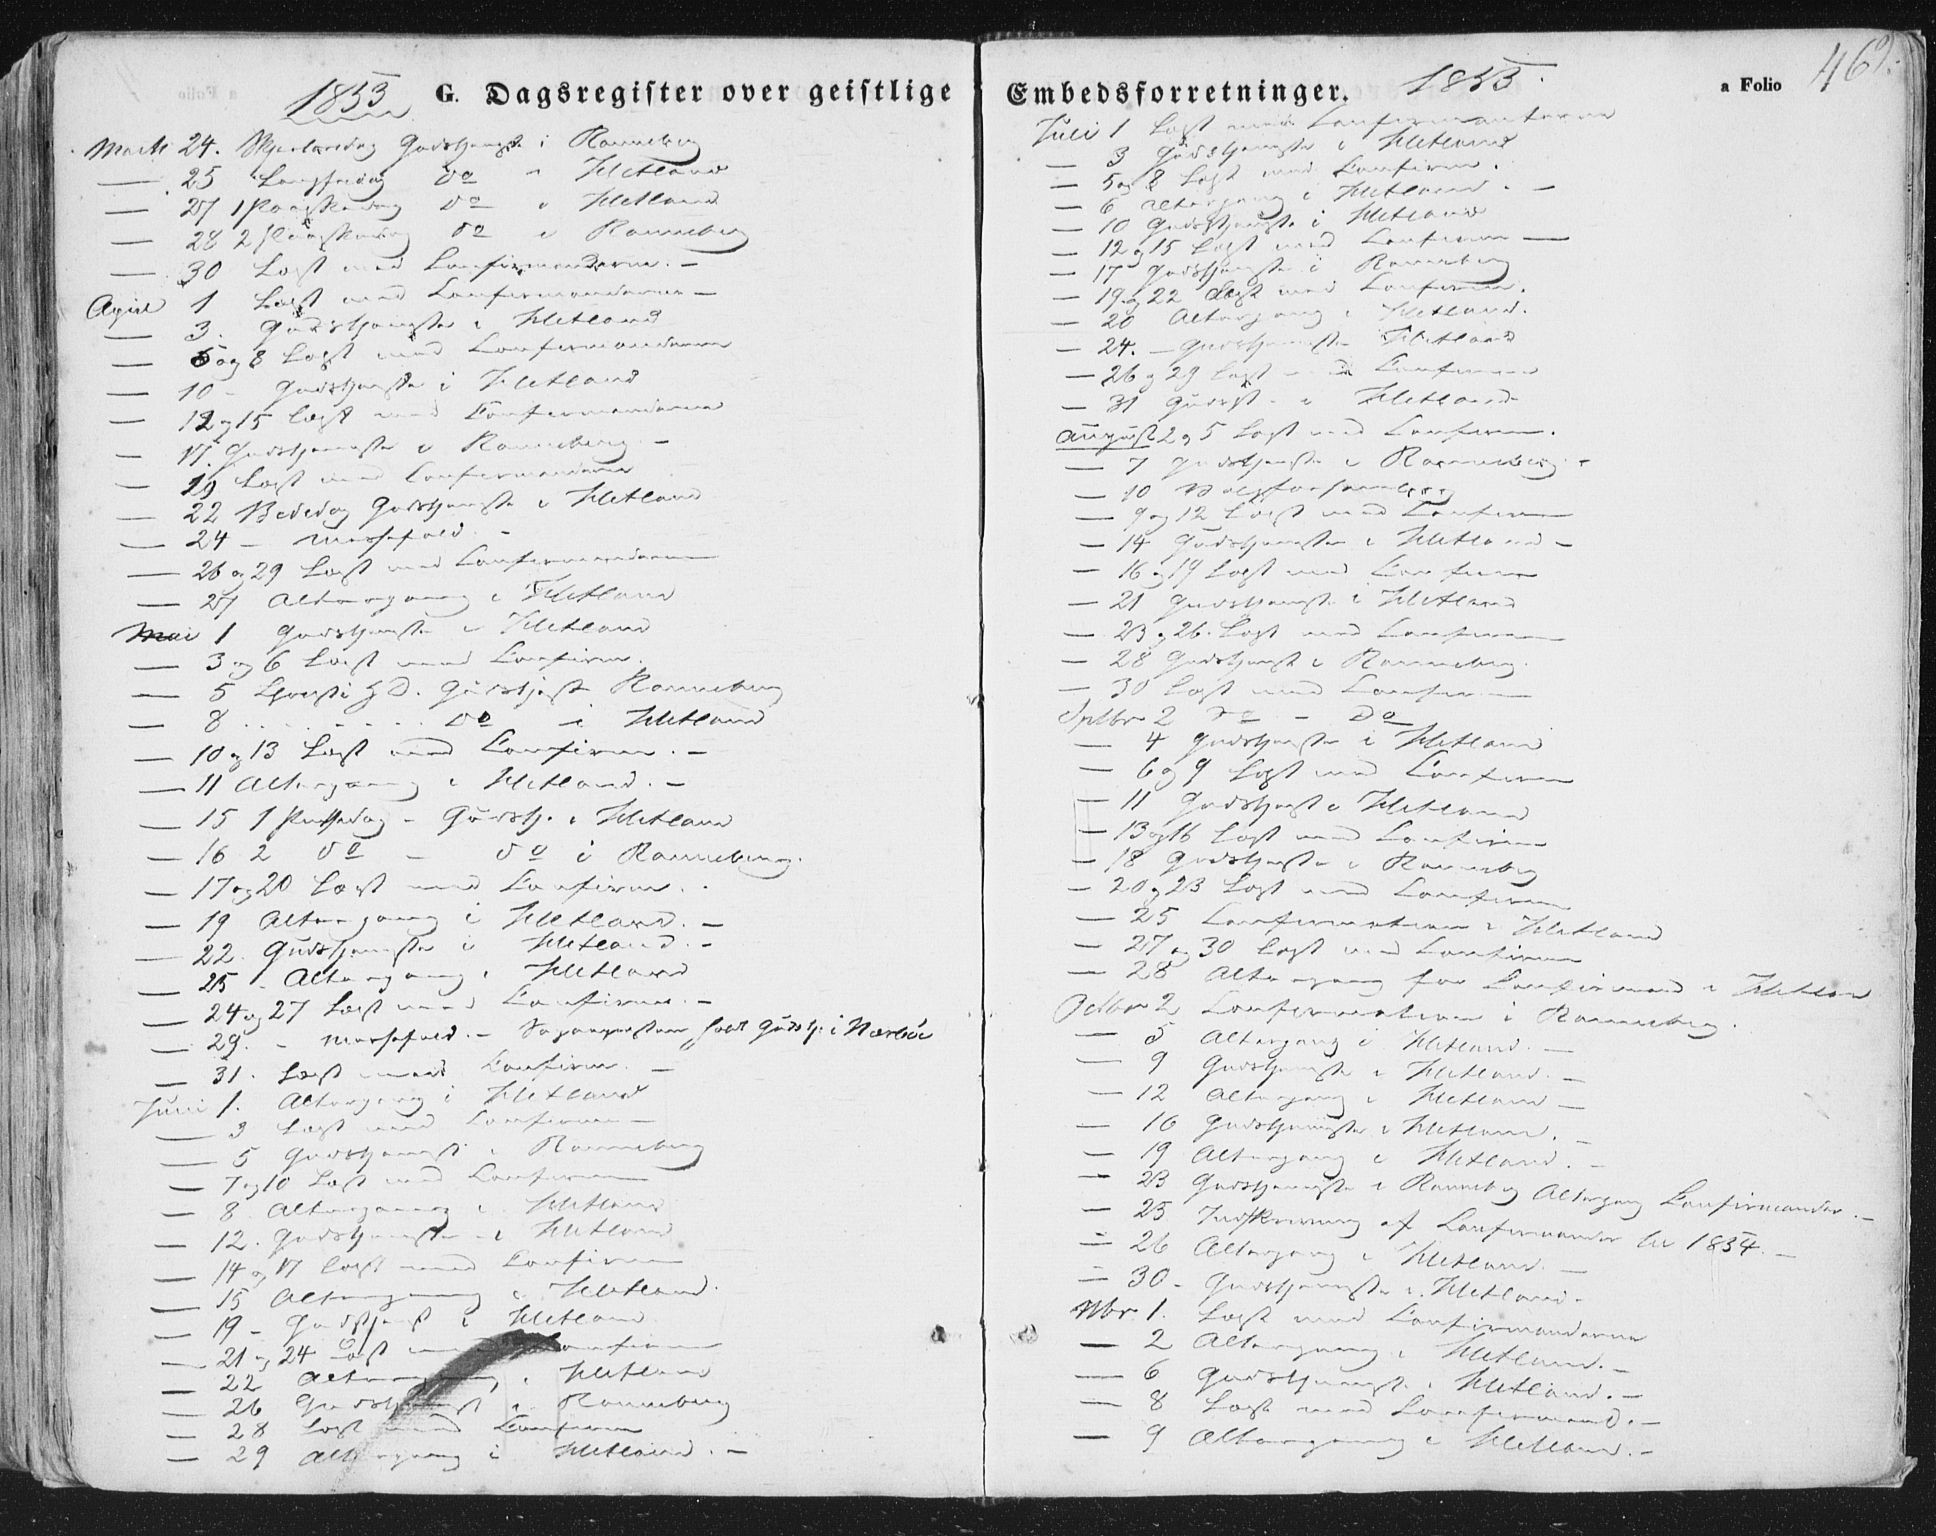 1853
G. Dagsregister over geistlige
Marts 24. Skjertorsdag Gudstjeneste i Ranneberg
— 25 Langfredag do i Hetland
— 27 1 Paaskedag do i Hetland
— 28 2 Paaskedag do i Ranneberg
— 30 Læst med Confirmanderne. —
April 1 Læst med Confirmanderne —
— 3. Gudstjeneste i Hetland
— 5 og 8 Læst med Confirmanderne
— 10 - Gudstjeneste i Hetland
— 12 og 15 Læst med Confirmanderne
— 17. Gudstjeneste i Ranneberg. —
— 19 Læst med Confirmanderne
— 22 Bededag Gudstjeneste i Hetland
— 24 — Messefald. —
— 26 og 29 Læst med Confirmanderne
— 27 Altergang i Hetland
Mai 1 Gudstjeneste i Hetland
— 3 og 6 Læst med Confirm.
— 5 Christi H D. Gudstjeneste Ranneberg
— 8 . . . . . . . do i Hetland
— 10 og 13 Læst med Confirm. —
— 11 Altergang i Hetland. —
— 15 1 Pintsedag - Gudstj. i Hetland
— 16 2 do — do i Ranneberg.
— 17 og 20 Læst med Confirm. .
— 19 Altergang i Hetland. —
— 22. Gudstjeneste i Hetland. —
— 25 - Altergang i Hetland
— 24 og 27 Læst med Confirm. —
— 29. - Messefald. — Sognepresten holdt Gudstj. i Nærbøe
— 31. Læst med Confirm. —
Juni 1. Altergang i Hetland
— 3 Læst med Confirm —
— 5 Gudstjeneste i Ranneberg
— 7 og 10 Læst med Confirm
— 8 Altergang i Hetland
— 12. Gudstjeneste i Hetland
— 14 og 17 Læst med Confirm
— 15 Altergang i Hetland.
— 19 - Gudstjenest i Hetland
— 21 og 24 Læst med Confirm
— 22 Altergang i Hetland
— 26 Gudstjenest i Ranneberg
— 28 Læst med Confirm
— 29 Altergang i Hetland. —
Embedsforretninger. 1853.
a Folio 469.
Juli 1 Læst med Confirmanterne
— 3 Gudstjeneste i Hetland
— 5 og 8 Læst med Confirm.
— 6 Altergang i Hetland. —
— 10 Gudstjeneste i Hetland
— 12 og 15 Læst med Confirm —
— 17 Gudstjeneste i Ranneberg
— 19 og 22 Læst med Confirm.
— 20 Altergang i Hetland.
— 24. — Gudstjeneste Hetland
— 26 og 29 Læst med Confirm
— 31 Gudstj. i Hetland
August 2 og 5 Læst med Confirm.
— 7 Gudstjeneste i Ranneberg. -
— 10 Valgforsamling
— 9 og 12 Læst med Confirm
— 14 Gudstjeneste i Hetland —
— 16 og 19 Læst med Confirm
— 21 Gudstjeneste i Hetland
— 23 og 26. Læst med Confirm
— 28 Gudstjenest i Ranneberg.
— 30 Læst med Confirm
Sptbr 2 do — do
— 4 Gudstjeneste i Hetland
— 6 og 9 Læst med Confirm
— 11 Gudstjenest i Hetland
— 13 og 16 Læst med Confirm
— 18 Gudstjeneste i Ranneberg
— 20 og 23 Læst med Confirm
— 25 Confirmation i Hetland
— 27 og 30 Læst med Confirm
— 28 Altergang for Confirmand i Hetland
Octbr 2 Confirmation i Ranneberg.
— 5 Altergang i Hetland. —
— 9 Gudstjeneste i Hetland. —
— 12 Altergang i Hetland —
— 16 Gudstjeneste i Hetland. —
— 19 Altergang i Hetland. —
— 23 Gudstjeneste i Ranneberg Altergang Confirmander. —
— 25 Indskrivning af Confirmander for 1854. —
— 26 Altergang i Hetland. —
— 30 - Gudstjeneste i Hetland -
Nbr. 1. Læst med Confirmanderne
— 2 Altergang i Hetland. —
— 6 Gudstjeneste i Hetland. —
— 8 Læst med Confirmand. —
— 9 Altergang i Hetland. —